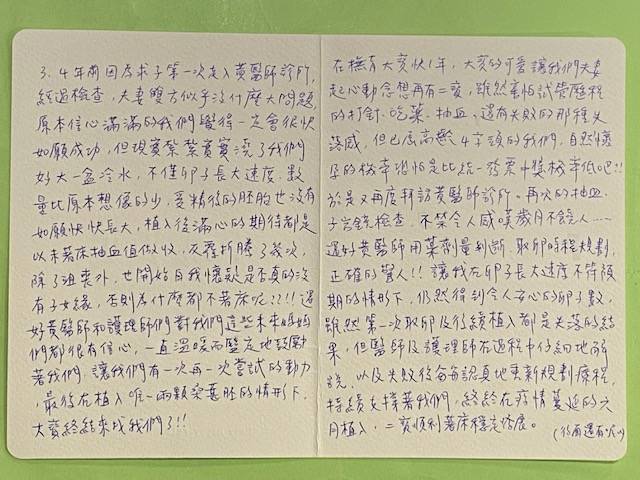 3、4年前因為求子第一次走入黃醫師診所,
經過檢查,夫妻雙方似乎沒什麼大問題,
原本信心滿滿的我們覺得一定會很快
如願成功,但現實紮紮實實澆了我們
好大一盆冷水,不僅卵子長大速度、數
量比原本想像的少,受精後的胚胎也沒有
如願快快長大,植入後滿心的期待都是
以未著床抽血值做收,反覆折騰了幾次,
除了沮喪外,也開始自我懷疑是否真的沒
有子女緣,否則為什麼都不著床呢???還
好黃醫師和護理師們對我們這些未來媽媽
們都很有信心,一直溫暖而堅定地鼓勵
著我們,讓我們有一次再一次嘗試的動力
,最後在植入唯一兩顆囊胚的情形下,
大寶終於來找我們了!!
在撫育大寶快1年,大寶的可愛讓我們夫妻
起心動念想再有二寶,雖然害怕試管歷程
的打針、吃藥、抽血、還有失敗的那種失
落感,但已屆高齡4字頭的我們,自然懷
孕的機率恐怕是比統一發票中獎機率低吧!!
於是又再度拜訪黃醫師診所,再次的抽血、
子宮鏡檢查,不禁令人感嘆歲月不饒人……
還好黃醫師用藥劑量判斷、取卵時程規劃,
正確的驚人!!讓我在卵子長大速度不符預
期的情形下,仍然得到令人安心的卵子數,
雖然第一次取卵及後續植入都是失落的結
果,但醫師及護理師在過程中仔細地解
說,以及失敗後每每認真地更新規劃療程,
持續支撐著我們,終於在疫情蔓延的六
月植入,二寶順利著床穩定發展。
(後面還有呢~)